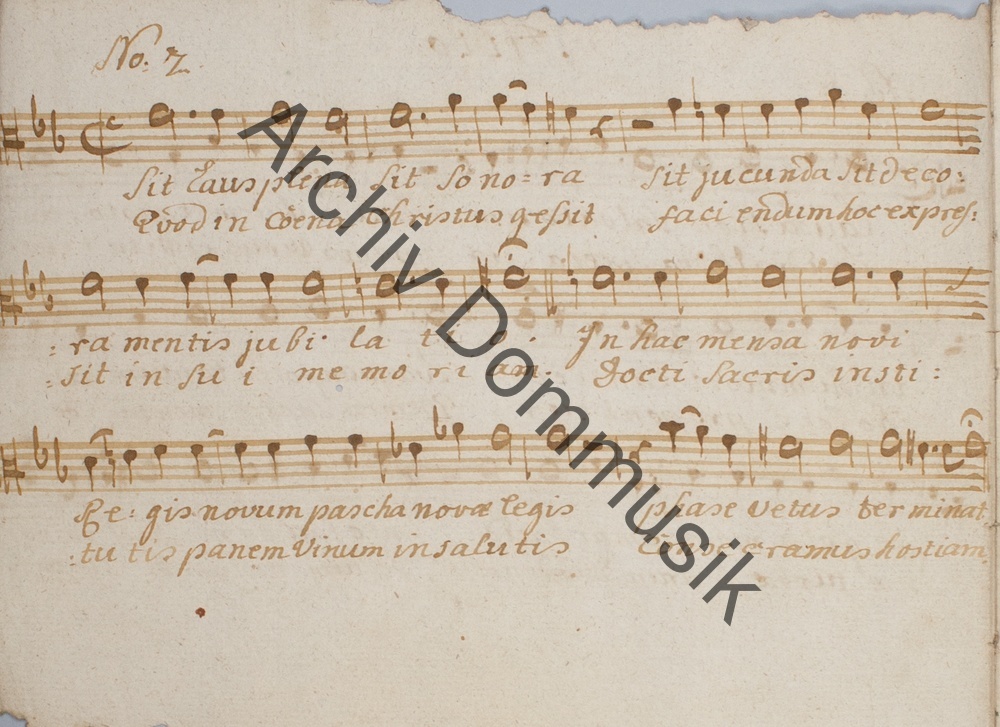 No. 2.
Sit Laus plena Sit So no = ra Sit ju cunda Sit deco :
Quod in Coena Christus gessit faci endum hoc expres :
: ra mentis ju bi · la ti o · In hac mensa novi
: sit in su i me mo ri am. Docti sacris insti :
Re : gis novum pascha novæ legis phase vetus ter minat
: tu tis panem Vinum in salutis Conse cramus hostiam
Archiv Dommusik